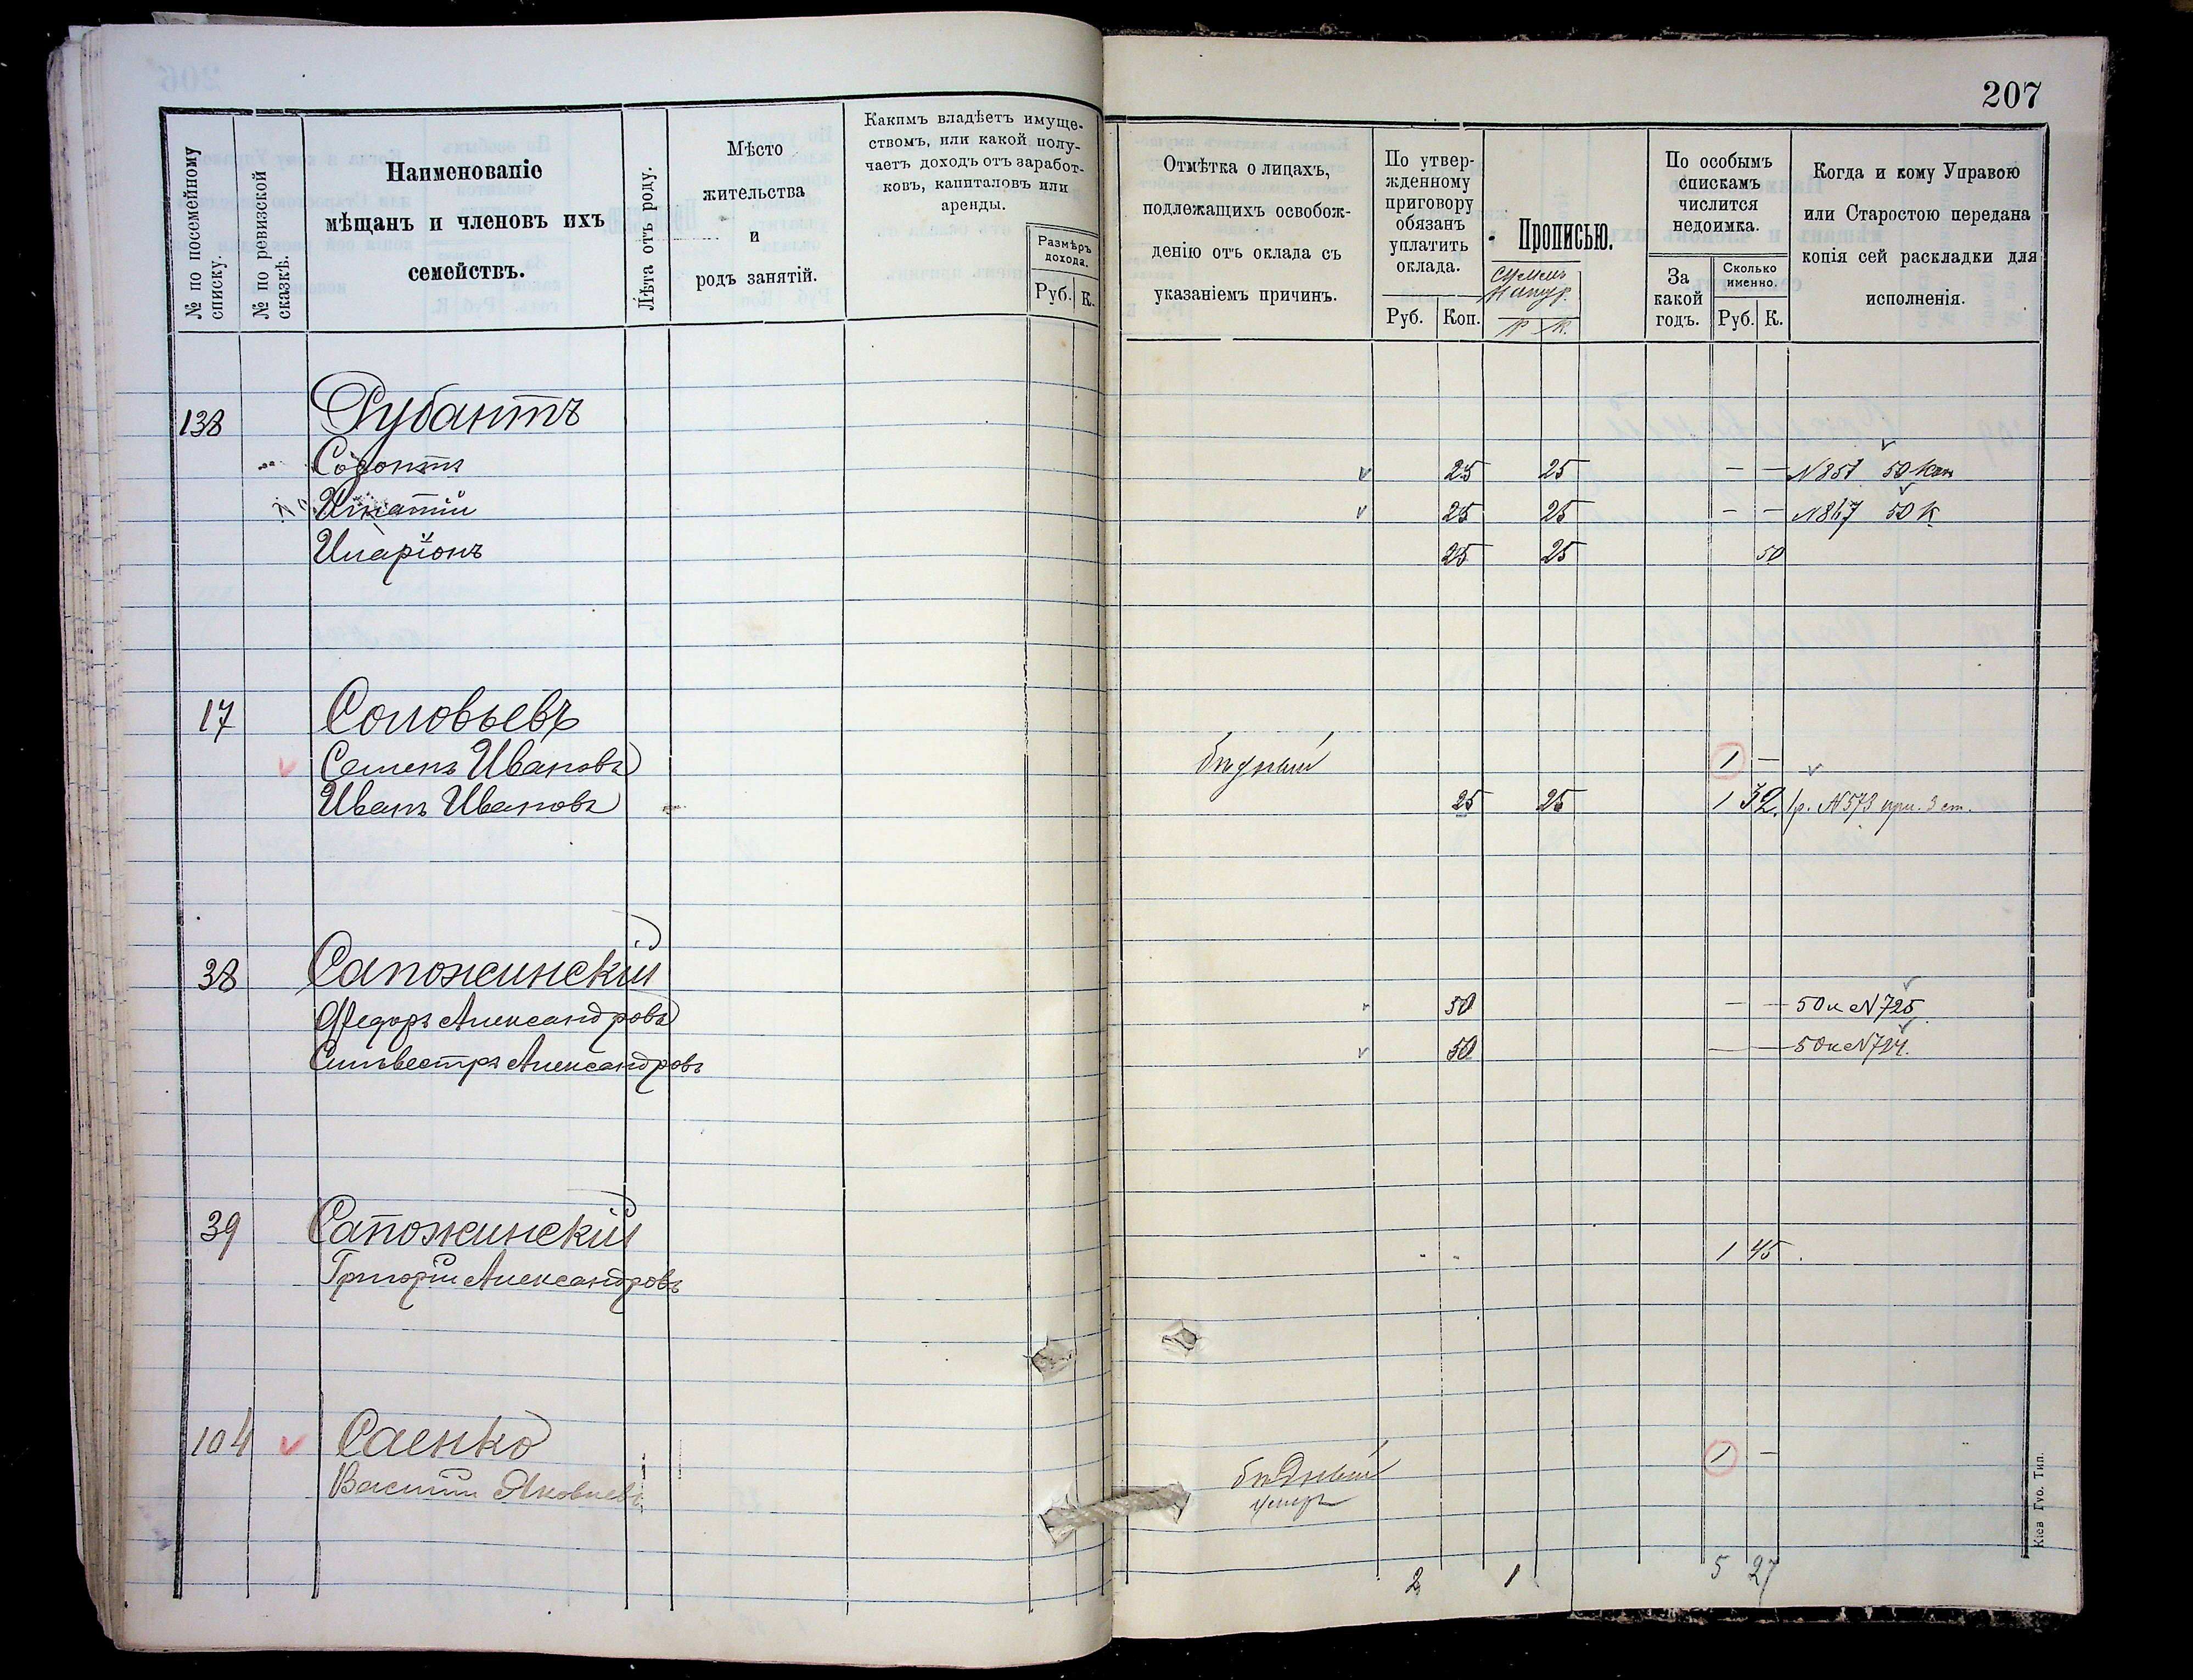 207
№ по посемейному списку.
№ по ревизской сказкѣ.
Наименованіе
мѣщанъ и членовъ ихъ
семействъ.
Лѣта отъ роду.
Мѣсто
жительства
и
родъ занятій.
Какимъ владѣетъ имуще-
ствомъ, или какой полу-
чаетъ доходъ отъ заработ-
ковъ, капиталовъ или
аренды.
Размѣръ
дохода.
Руб. К.
Отмѣтка о лицахъ,
подлежащихъ освобож-
денію отъ оклада съ
указаніемъ причинъ.
По утвер-
жденному
приговору
обязанъ
уплатить
оклада.
Руб. Коп.
Прописью.
Р К.
По особымъ
спискамъ
числится
недоимка.
За
какой
годъ.
Сколько
именно.
Руб. К.
Когда и кому Управою
или Старостою передана
копія сей раскладки для
исполненія.
138 Рубантъ
Созонтъ 25 25 — — N 851 50 коп
Игнатій 25 25 — — N 847 50 к
Иларіонъ 25 25 50
17 Соловьевъ
Семенъ Ивановъ бѣдный 1 —
Иванъ Ивановъ 25 25 1 32. 1р. N 573 при. 3 ст.
38 Сапожинскій
Федоръ Александровъ 50 — — 50 к N 725
Сильвестръ Александровъ 50 — — 50 к N 724.
39 Сапожинскій
Григорій Александровъ 1 45
104 Саенко 1 —
Василій Яковлевъ бѣдный
умеръ
2 1 5 27
Кіев Губ. Тип.